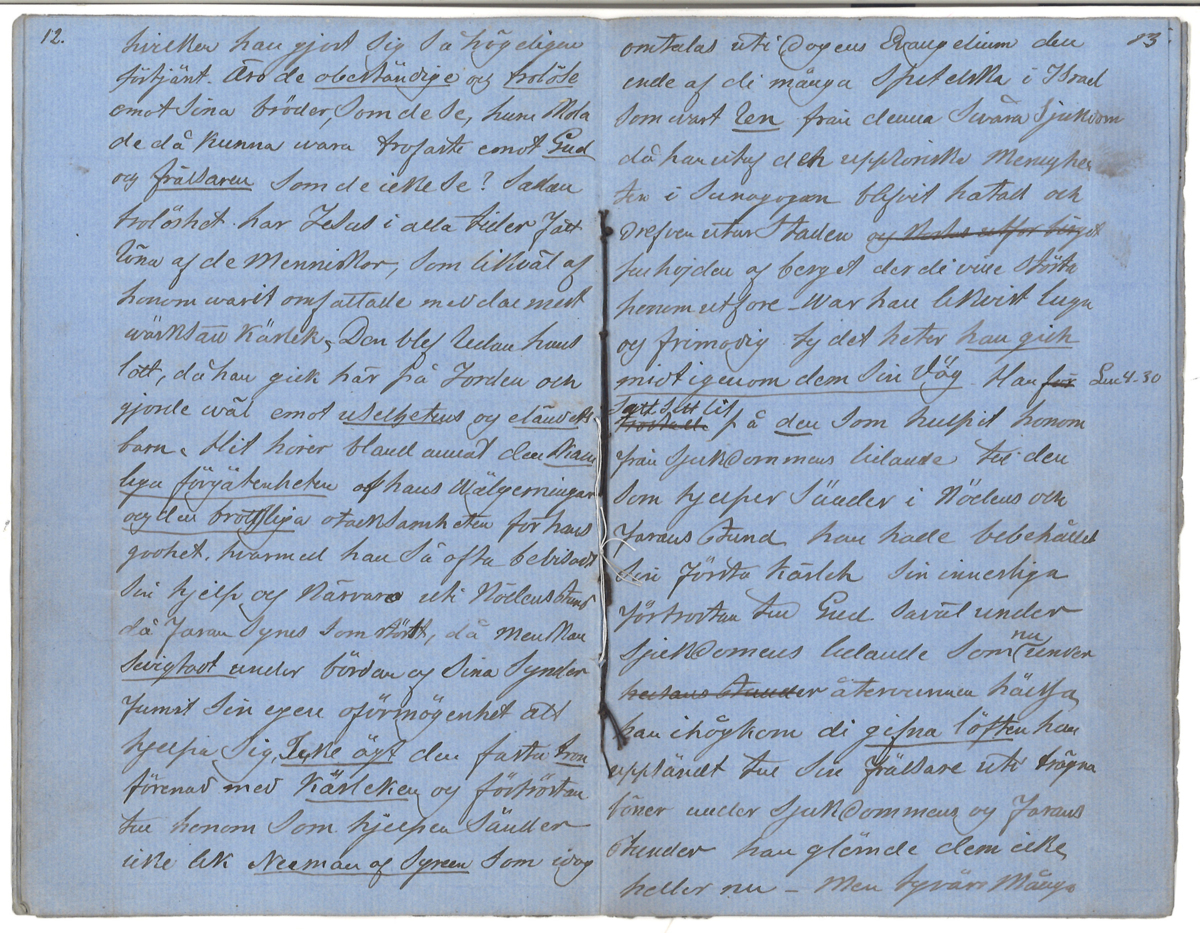 12.
hvilken han gjort sig så högeligen
förtjänt. Äro de obeständige och trolöse
emot sina bröder, som de se, huru skola
de då kunna wara trofaste emot Gud
og frälsaren som de icke se? Sådan
trolöshet har Jesus i alla tider fått
röna af de Menniskor, som likväl af
honom warit omfattade med den mest
wärksam kärlek. Den blef redan hans
lott, då han gick här på Jorden och
gjorde wäl emot uselhetens og eländets
barn. Hit hörer bland annat den
liga förgätenheten af hans wälgerningar
og den brottsliga otacksamheten för hans
godhet, hwarmed han så ofta bebisadt
sin hjelp og närvaro uti Nödens stund
då faran synes som störst, då menskan
swigtadt under bördan af sina synder
funnit sin egen oförmögenhet att
hjelpa sig, Icke ägt den fasta tron
förenad med kärleken og förtröstan
till honom som hjelpen sänder
icke lik Neeman af Syreen som idag
83.
omtalas uti dagens Evangelium den
ende af di många Spetelska i Israel
som wart ren från denna swåra sjukdom
då han utaf den upptänskt Menighe
ten i Sunagogan blifvit hatad och
drefven utur Staden og
till höjden af berget der di ville störta
honom utföre War han likvist lugn
og frimodig ty det heter han gick
midt igenom dem sin Väg. Han för Luc 4-30
satt sitt lit
på den som hulpit honom
från sjukdommens lidande till den
som hjelper sänder i Nödens och
farans stund han hade bebehållit
sin första kärlek sin innerliga
förtröstan till Gud såväl under
sjukdomens lidande som nu under
hälsans stunder återvunnen hälsa,
han ihågkom di gifna löften han
uppsändt till sin frälsare uti trägna
böner under sjukdommens og farans
stunder han glömde dem icke
heller nu – Men tyvärr Många